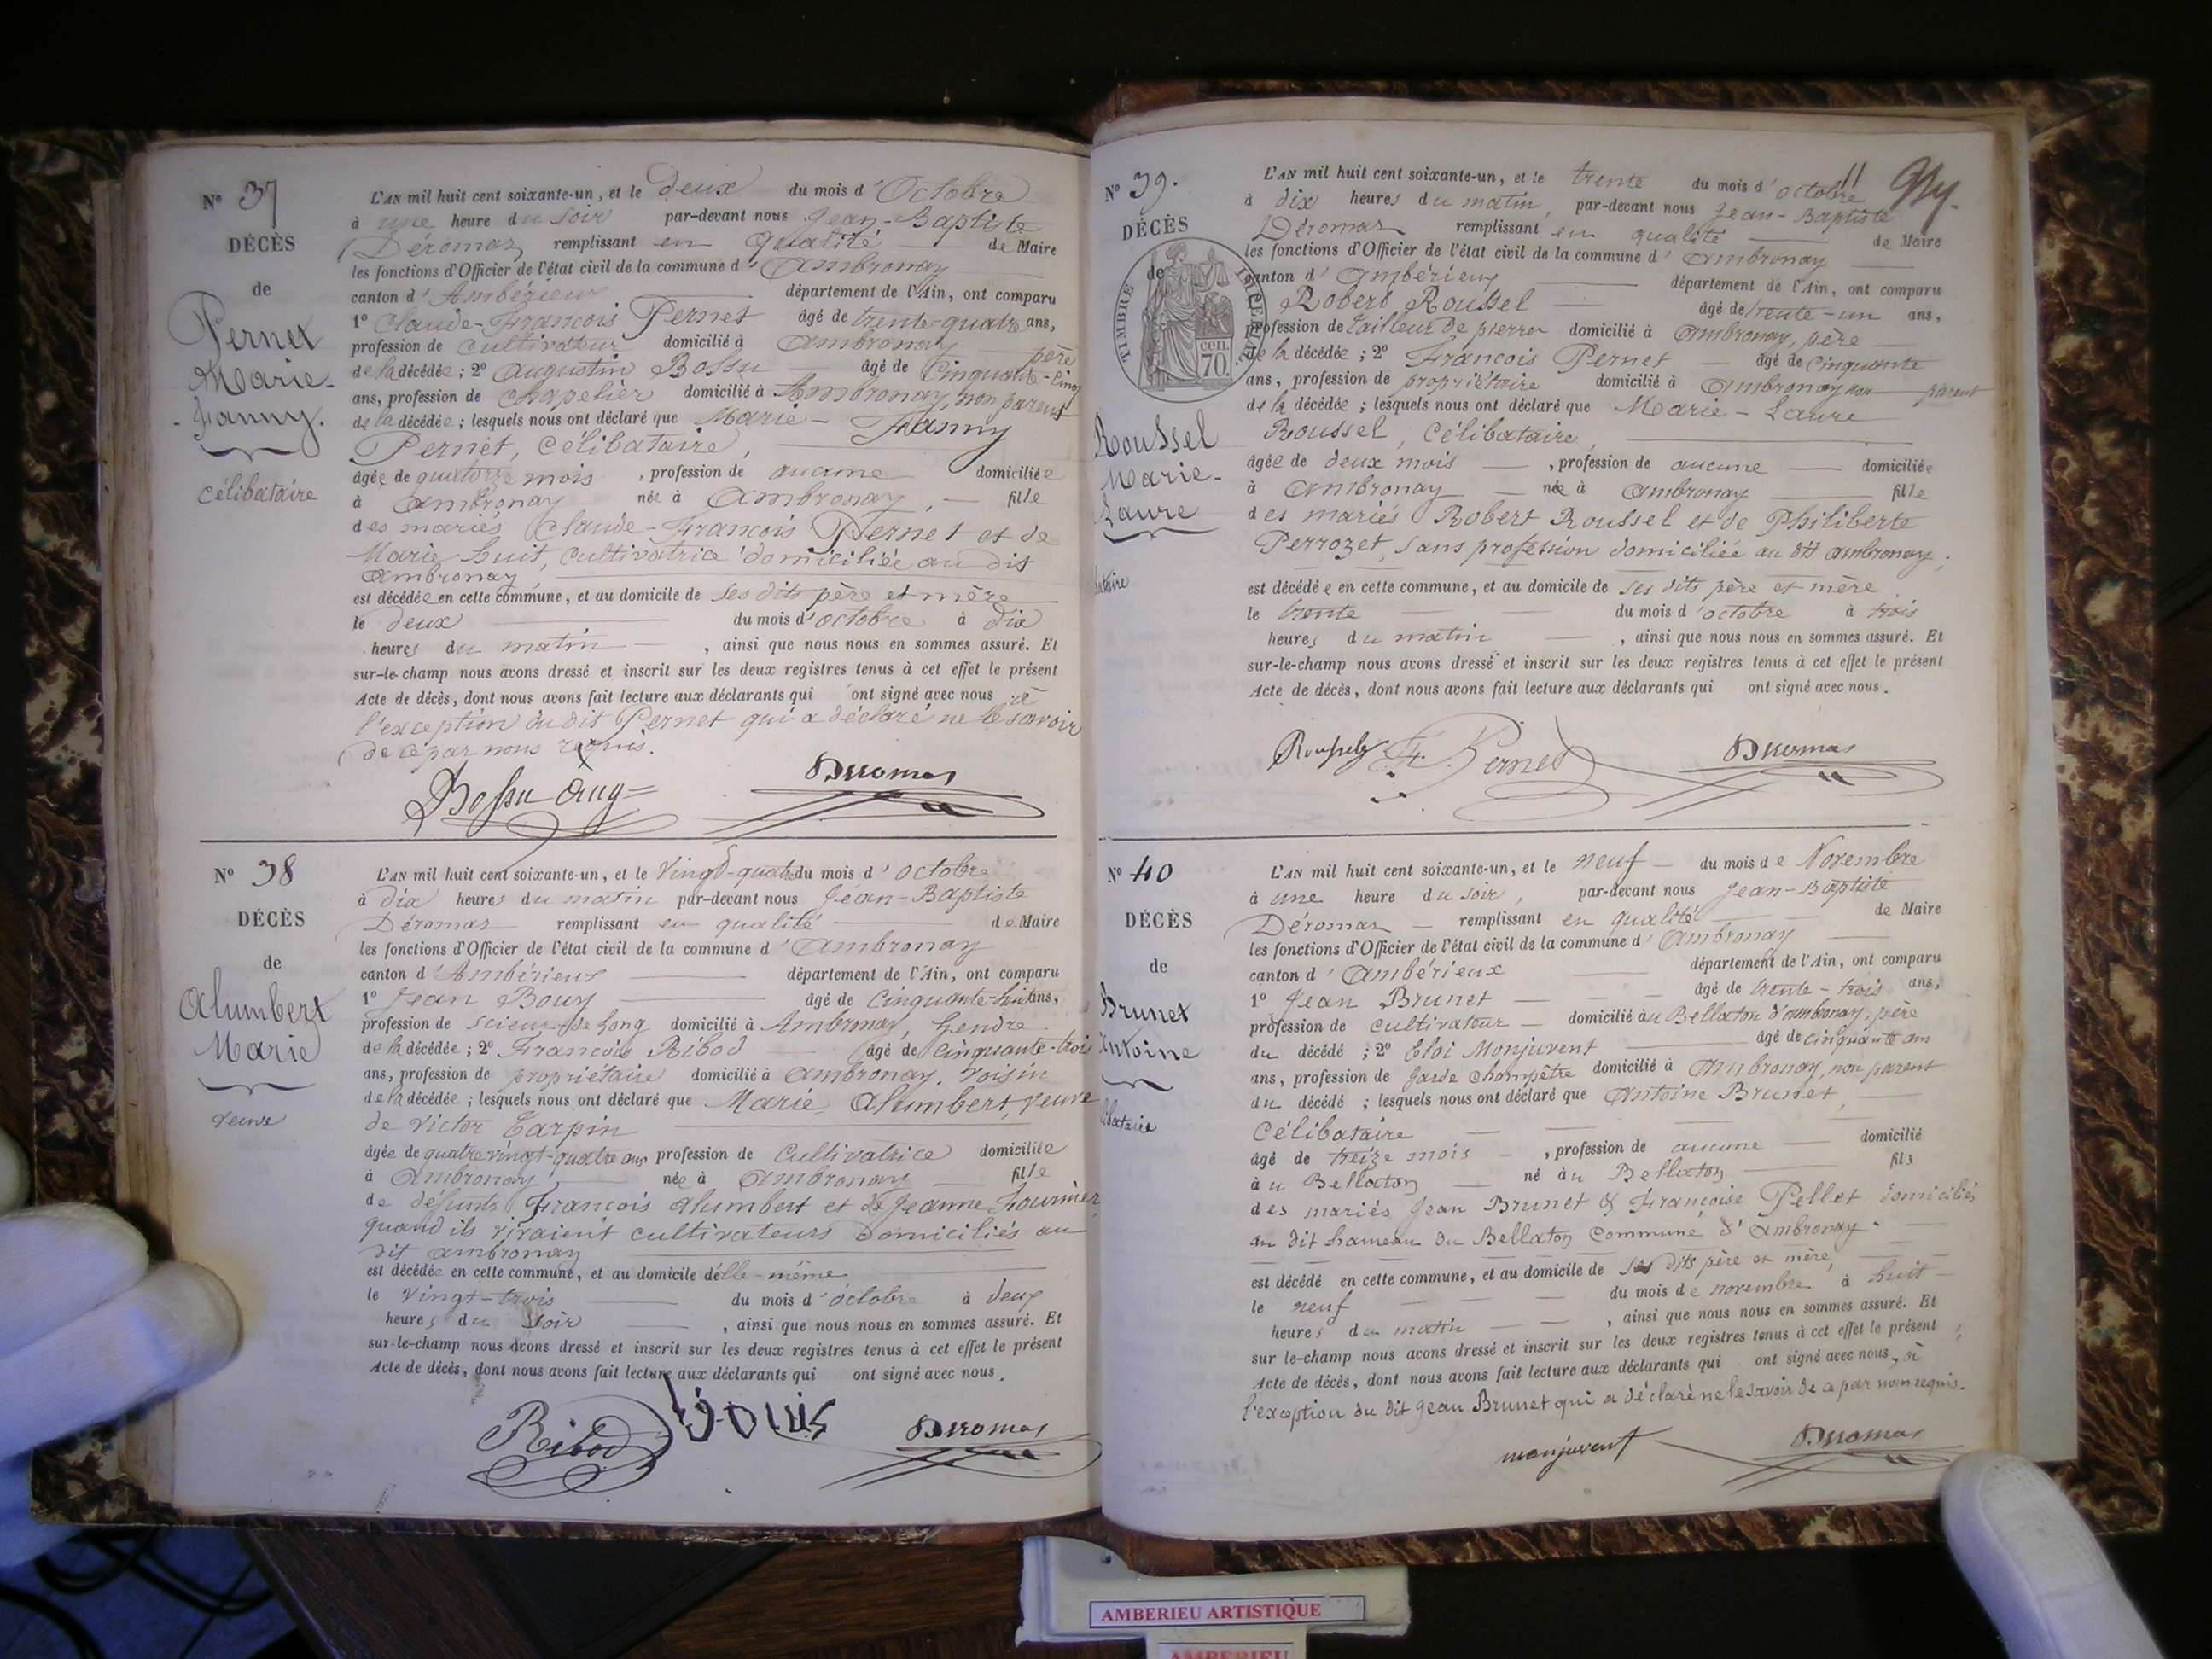 N° 37
DÉCÈS
de
Pernet
Marie-
Fanny.
célibataire
L'AN mil huit cent soixante-un, et le deux du mois d'Octobre
à une heure du soir par-devant nous Jean-Baptiste
Déromas remplissant en qualité de Maire
les fonctions d'Officier de l'état civil de la commune d'Ambronay
canton d'Ambérieux département de l'Ain, ont comparu
1° Claude-François Pernet âgé de trente-quatre ans,
profession de cultivateur domicilié à Ambronay père
de la décédée ; 2° Augustin Bossu âgé de Cinquante-cinq
ans, profession de Chapelier domicilié à Ambronay, non parent
de la décédée ; lesquels nous ont déclaré que Marie-Fanny
Pernet, célibataire,
âgée de quatorze mois, profession de aucune domiciliée
à Ambronay née à Ambronay, fille
des mariés Claude-François Pernet et de
Marie huit, cultivatrice domiciliée au dit
Ambronay
est décédée en cette commune, et au domicile de ses dits père et mère
le deux du mois d'octobre à dix
heures du matin, ainsi que nous nous en sommes assuré. Et
sur-le-champ nous avons dressé et inscrit sur les deux registres tenus à cet effet le présent
Acte de décès, dont nous avons fait lecture aux déclarants qui ont signé avec nous à
l'exception du dit Pernet qui a déclaré ne le savoir
de ce par nous requis.
Bossu Aug Déromas
N° 38
DÉCÈS
de
Alumbert
Marie
veuve
L'AN mil huit cent soixante-un, et le Vingt-quatre du mois d'octobre
à dix heures du matin par-devant nous Jean-Baptiste
Déromas remplissant en qualité de Maire
les fonctions d'Officier de l'état civil de la commune d'Ambronay
canton d'Ambérieux département de l'Ain, ont comparu
1° Jean Bouy âgé de Cinquante-huit ans,
profession de scieur de long domicilié à Ambronay, gendre
de la décédée ; 2° François Ribod âgé de Cinquante-trois
ans, profession de propriétaire domicilié à Ambronay, voisin
de la décédée ; lesquels nous ont déclaré que Marie Alumbert, veuve
de Victor Tarpin
âgée de quatre vingt-quatre ans, profession de Cultivatrice domiciliée
à Ambronay, née à Ambronay fille
de défunts François Alumbert et de Jeanne Fournier
quand ils vivaient cultivateurs domiciliés au
dit ambronay
est décédée en cette commune, et au domicile d'elle-même
le Vingt-trois du mois d'octobre à deux
heures du soir, ainsi que nous nous en sommes assuré. Et
sur-le-champ nous avons dressé et inscrit sur les deux registres tenus à cet effet le présent
Acte de décès, dont nous avons fait lecture aux déclarants qui ont signé avec nous.
Ribod Déromas
N° 39.
DÉCÈS
de
TIMBRE IMPÉRIAL
70 cen.
Roussel
Marie-
Laure
L'AN mil huit cent soixante-un, et le trente du mois d'octobre
à dix heures du matin, par-devant nous Jean-Baptiste
Déromas remplissant en qualité de Maire
les fonctions d'Officier de l'état civil de la commune d'Ambronay
canton d'Ambérieux département de l'Ain, ont comparu
Robert Roussel âgé de trente-un ans,
profession de tailleur de pierre domicilié à Ambronay, père
de la décédée ; 2° François Pernet âgé de Cinquante
ans, profession de propriétaire domicilié à Ambronay non parent
de la décédée ; lesquels nous ont déclaré que Marie-Laure
Roussel, célibataire,
âgée de deux mois, profession de aucune domiciliée
à Ambronay née à Ambronay fille
des mariés Robert Roussel et de Philiberte
Perrozet, sans profession domiciliée au dit ambronay,
est décédée en cette commune, et au domicile de ses dits père et mère
le trente du mois d'octobre à trois
heures du matin, ainsi que nous nous en sommes assuré. Et
sur-le-champ nous avons dressé et inscrit sur les deux registres tenus à cet effet le présent
Acte de décès, dont nous avons fait lecture aux déclarants qui ont signé avec nous.
Roussel F. Pernet Déromas
N° 40
DÉCÈS
de
Brunet
Antoine
L'AN mil huit cent soixante-un, et le neuf du mois de Novembre
à une heure du soir, par-devant nous Jean-Baptiste
Déromas remplissant en qualité de Maire
les fonctions d'Officier de l'état civil de la commune d'Ambronay
canton d'Ambérieux département de l'Ain, ont comparu
1° Jean Brunet âgé de trente-trois ans,
profession de cultivateur domicilié au Bellaton d'ambronay, père
du décédé ; 2° Eloi Monjuvent âgé de cinquante ans
ans, profession de garde champêtre domicilié à Ambronay, non parent
du décédé ; lesquels nous ont déclaré que Antoine Brunet,
célibataire
âgé de treize mois, profession de aucune domicilié
au Bellaton né au Bellaton fils
des mariés Jean Brunet & Françoise Pellet domiciliés
au dit hameau du Bellaton Commune d'Ambronay.
est décédé en cette commune, et au domicile de ses dits père et mère,
le neuf du mois de novembre à huit
heures du matin, ainsi que nous nous en sommes assuré. Et
sur le-champ nous avons dressé et inscrit sur les deux registres tenus à cet effet le présent
Acte de décès, dont nous avons fait lecture aux déclarants qui ont signé avec nous, à
l'exception du dit Jean Brunet qui a déclaré ne le savoir de ce par nous requis.
monjuvent Déromas
AMBERIEU ARTISTIQUE
AMBERIEU